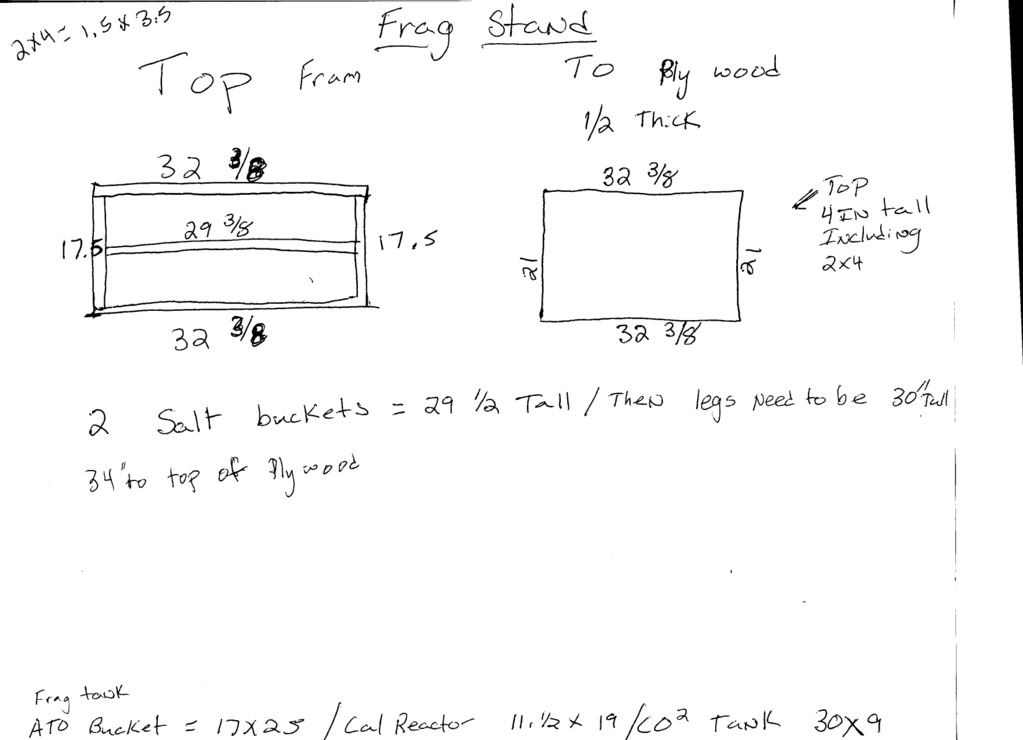 2x4 = 1.5 x 3.5
Frag Stand
Top Fram
To Plywood
1/2 Thick
32 3/8
29 3/8
17.5
17.5
32 3/8
32 3/8
21
21
32 3/8
Top
4IN tall
Including
2x4
2 Salt buckets = 29 1/2 Tall / Then legs Need to be 30" Tall
34" to top of Plywood
Frag tank
ATO Bucket = 17x25 / Cal Reactor 11.1/2 x 19 / CO2 Tank 30x9